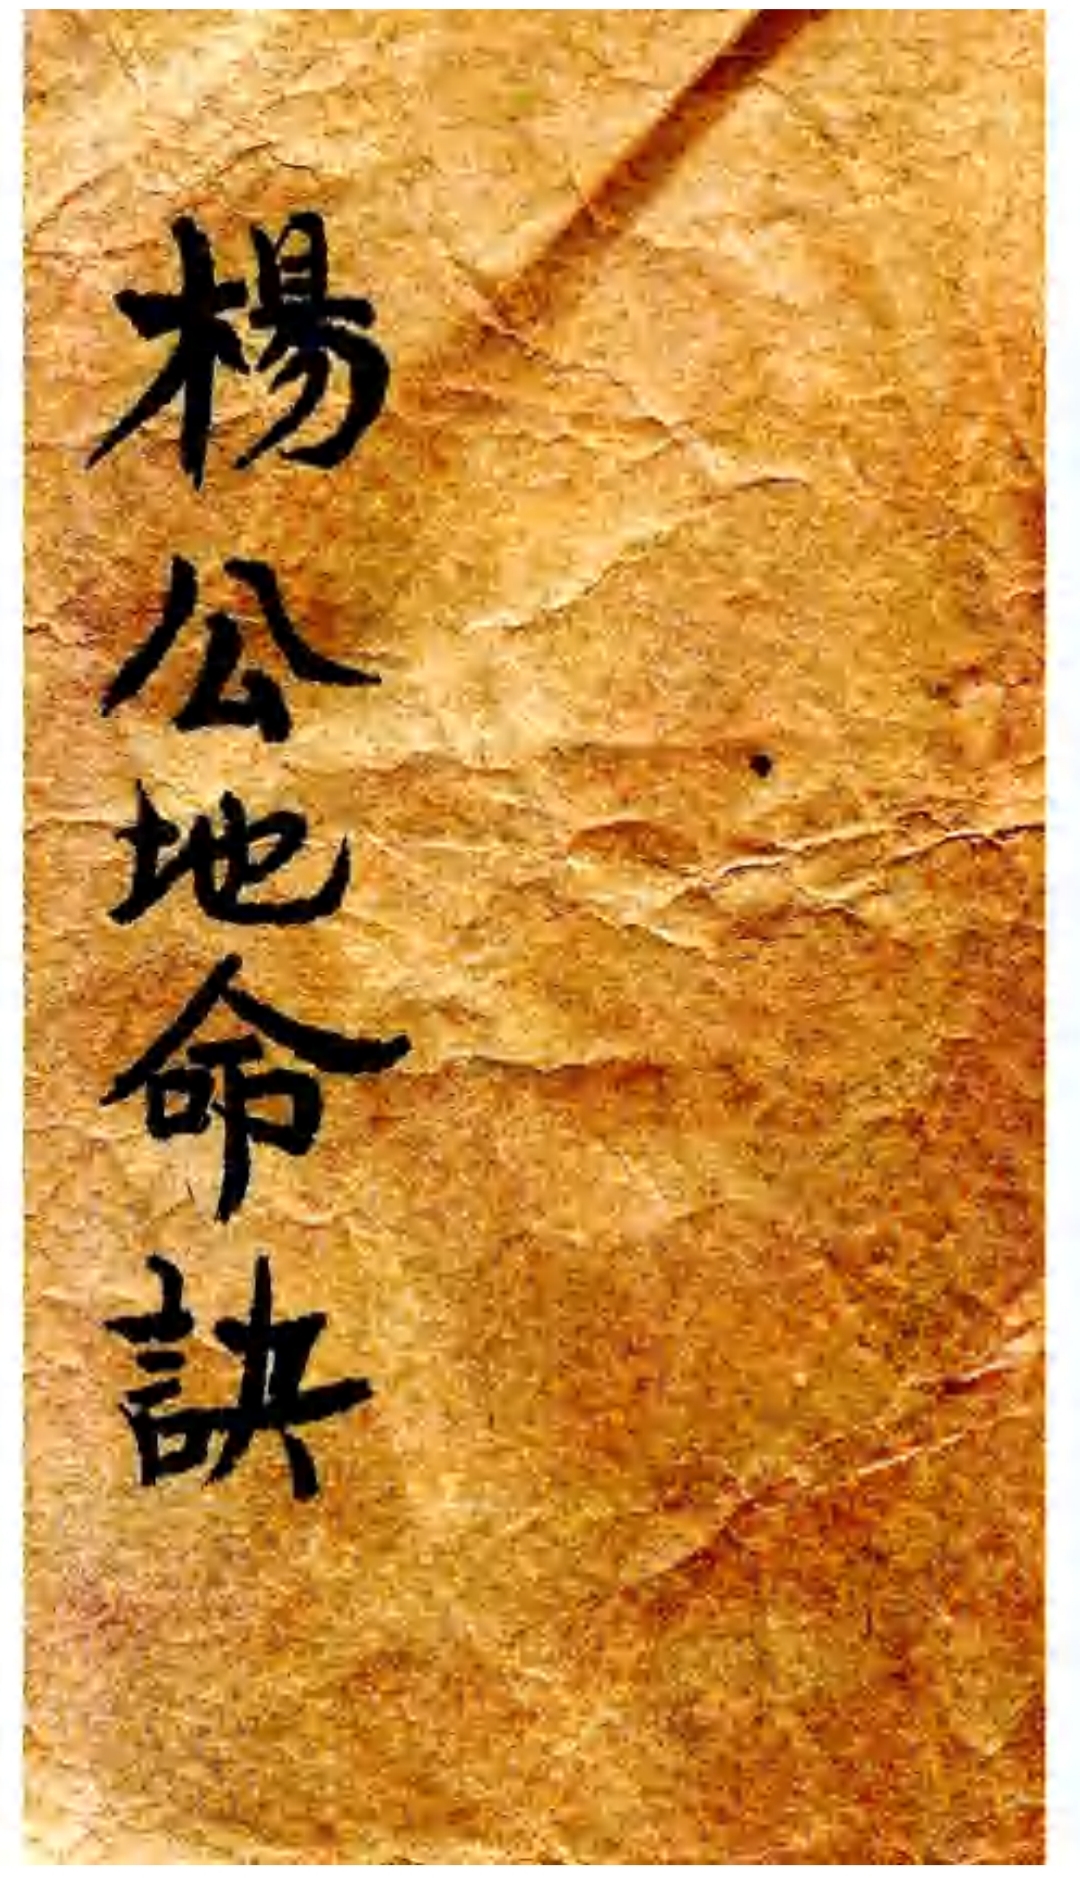 楊公地命訣